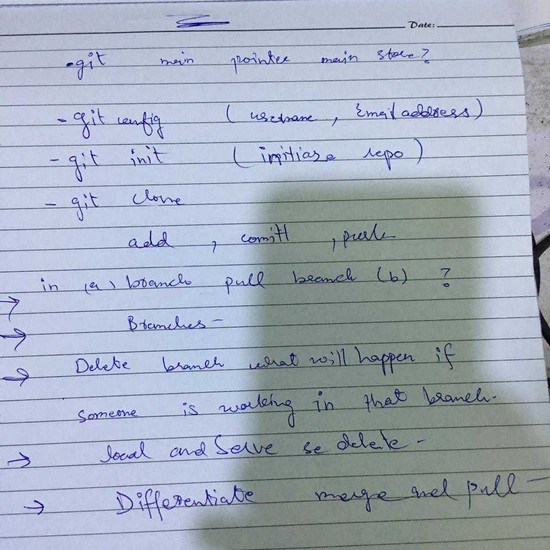 Date:
.git main pointer main store?
- git config ( username , Email address )
- git init ( initiase repo )
- git clone
add , comitt , push
in (a) branch pull branch (b) ?
→ Branches -
→ Delete branch what will happen if
someone is working in that branch.
→ local and Serve se delete -
→ Differentiate merge and pull -